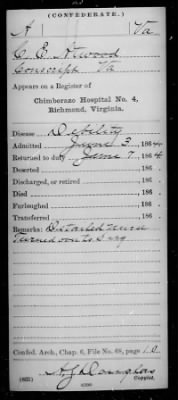 (CONFEDERATE.)
A Va
C E Atwood
Conscript Va
Appears on a Register of
Chimborazo Hospital No. 4,
Richmond, Virginia.
Disease Debility
Admitted June 3, 1864
Returned to duty June 7, 1864
Deserted , 186 .
Discharged, or retired , 186 .
Died , 186 .
Furloughed , 186 .
Transferred , 186 .
Remarks: Detailed nurse
Turned over to Surg
Confed. Arch., Chap. 6, File No. 68, page 10
(635)
Copyist.